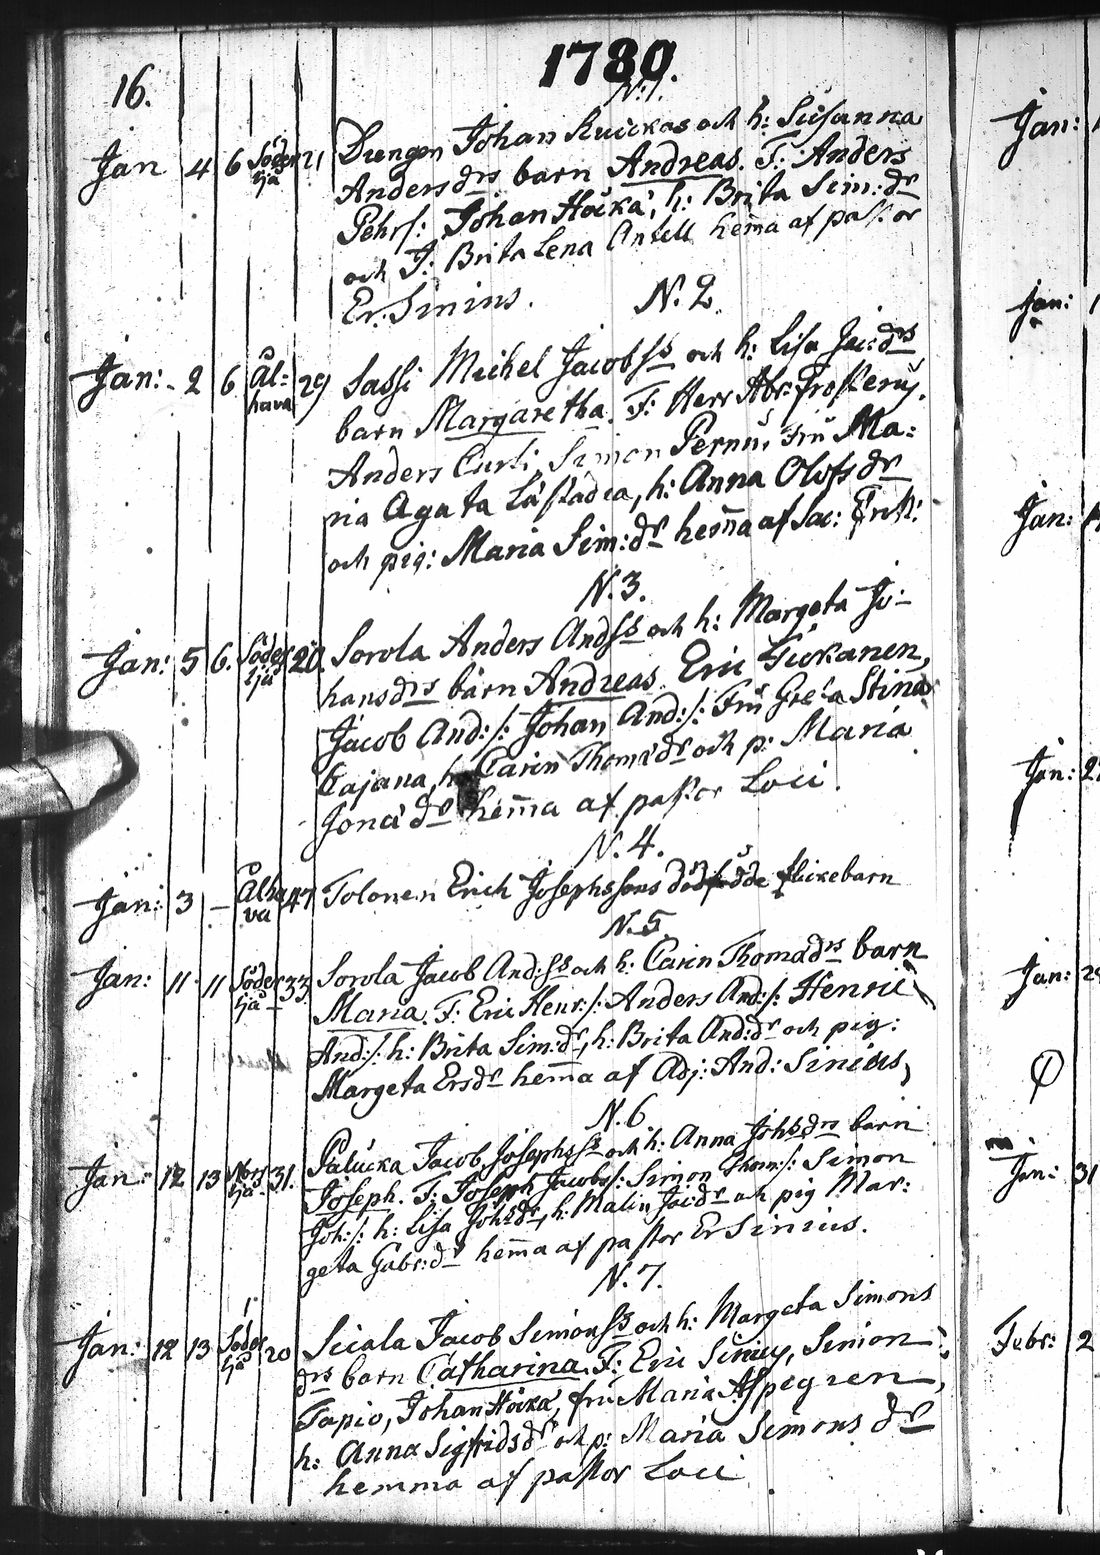 1780.
16.
N:1.
Jan 4 6 Söder sjä 21 Drengen Johan Kuickas och h: Susanna
Andersdrs barn Andreas. F: Anders
Pehrs: Johan Höcka, h: Brita Sim:dr
och P: Brita Lena Antell hem̄a af pastor
Er: Sinius.
N:2
Jan: 2 6 Ål= hava 29 Sassi Michel Jacobss och h: Lisa Jac:drs
barn Margaretha. F: Herr Abr: Frosterus,
Anders Curti, Simon Pernu, Fru Ma=
ria Agata Lästadia, h: Anna Olofsdr
och pig: Maria Sim:dr hem̄a af Sac:
N.3.
Jan: 5 6. Söder sjä 20. Sorola Anders Andss och h: Margeta Jo=
hansdrs barn Andreas. Eric
Jacob And:s: Johan And:s: Fru Greta Stina
Cajana, h: Carin Thomædr och p: Maria
Jonædr hem̄a af pastor Loci.
N.4.
Jan: 3 – Ålha va 47 Tolonen Erich Josephssons dödfödde flickebarn
N.5.
Jan: 11 11 Söder sjä 33. Sorola Jacob And:ss och h: Carin Thomædrs barn
Maria. F: Eric Henr:s: Anders And:s: Henric
And:s: h: Brita Sim:dr, h: Brita And:dr och pig:
Margeta Ersdr hem̄a af Adj: And: Sinius,
N.6
Jan: 12 13 Norr sjä 31. Palucka Jacob Josephss och h: Anna Johsdrs barn
Joseph. F: Joseph Jacobs: Simon Thom:s: Simon
Joh:s: h: Lisa Johsdr, h: Malin Jacdr och pig Mar=
geta Gabr:dr hem̄a af pastor Er Sinius.
N.7.
Jan: 12 13 Söder sjä 20 Sicala Jacob Simonss och h: Margeta Simons
drs barn Catharina. F: Eric Sinius, Simon
Tapio, Johan Höcka, fru Maria Aspegren,
h: Anna Sigfridsdr och p: Maria Simons dr
hemma af pastor Loci
Jan:
Jan:
Jan:
Jan:
Jan:
Jan: 31
Febr: 2